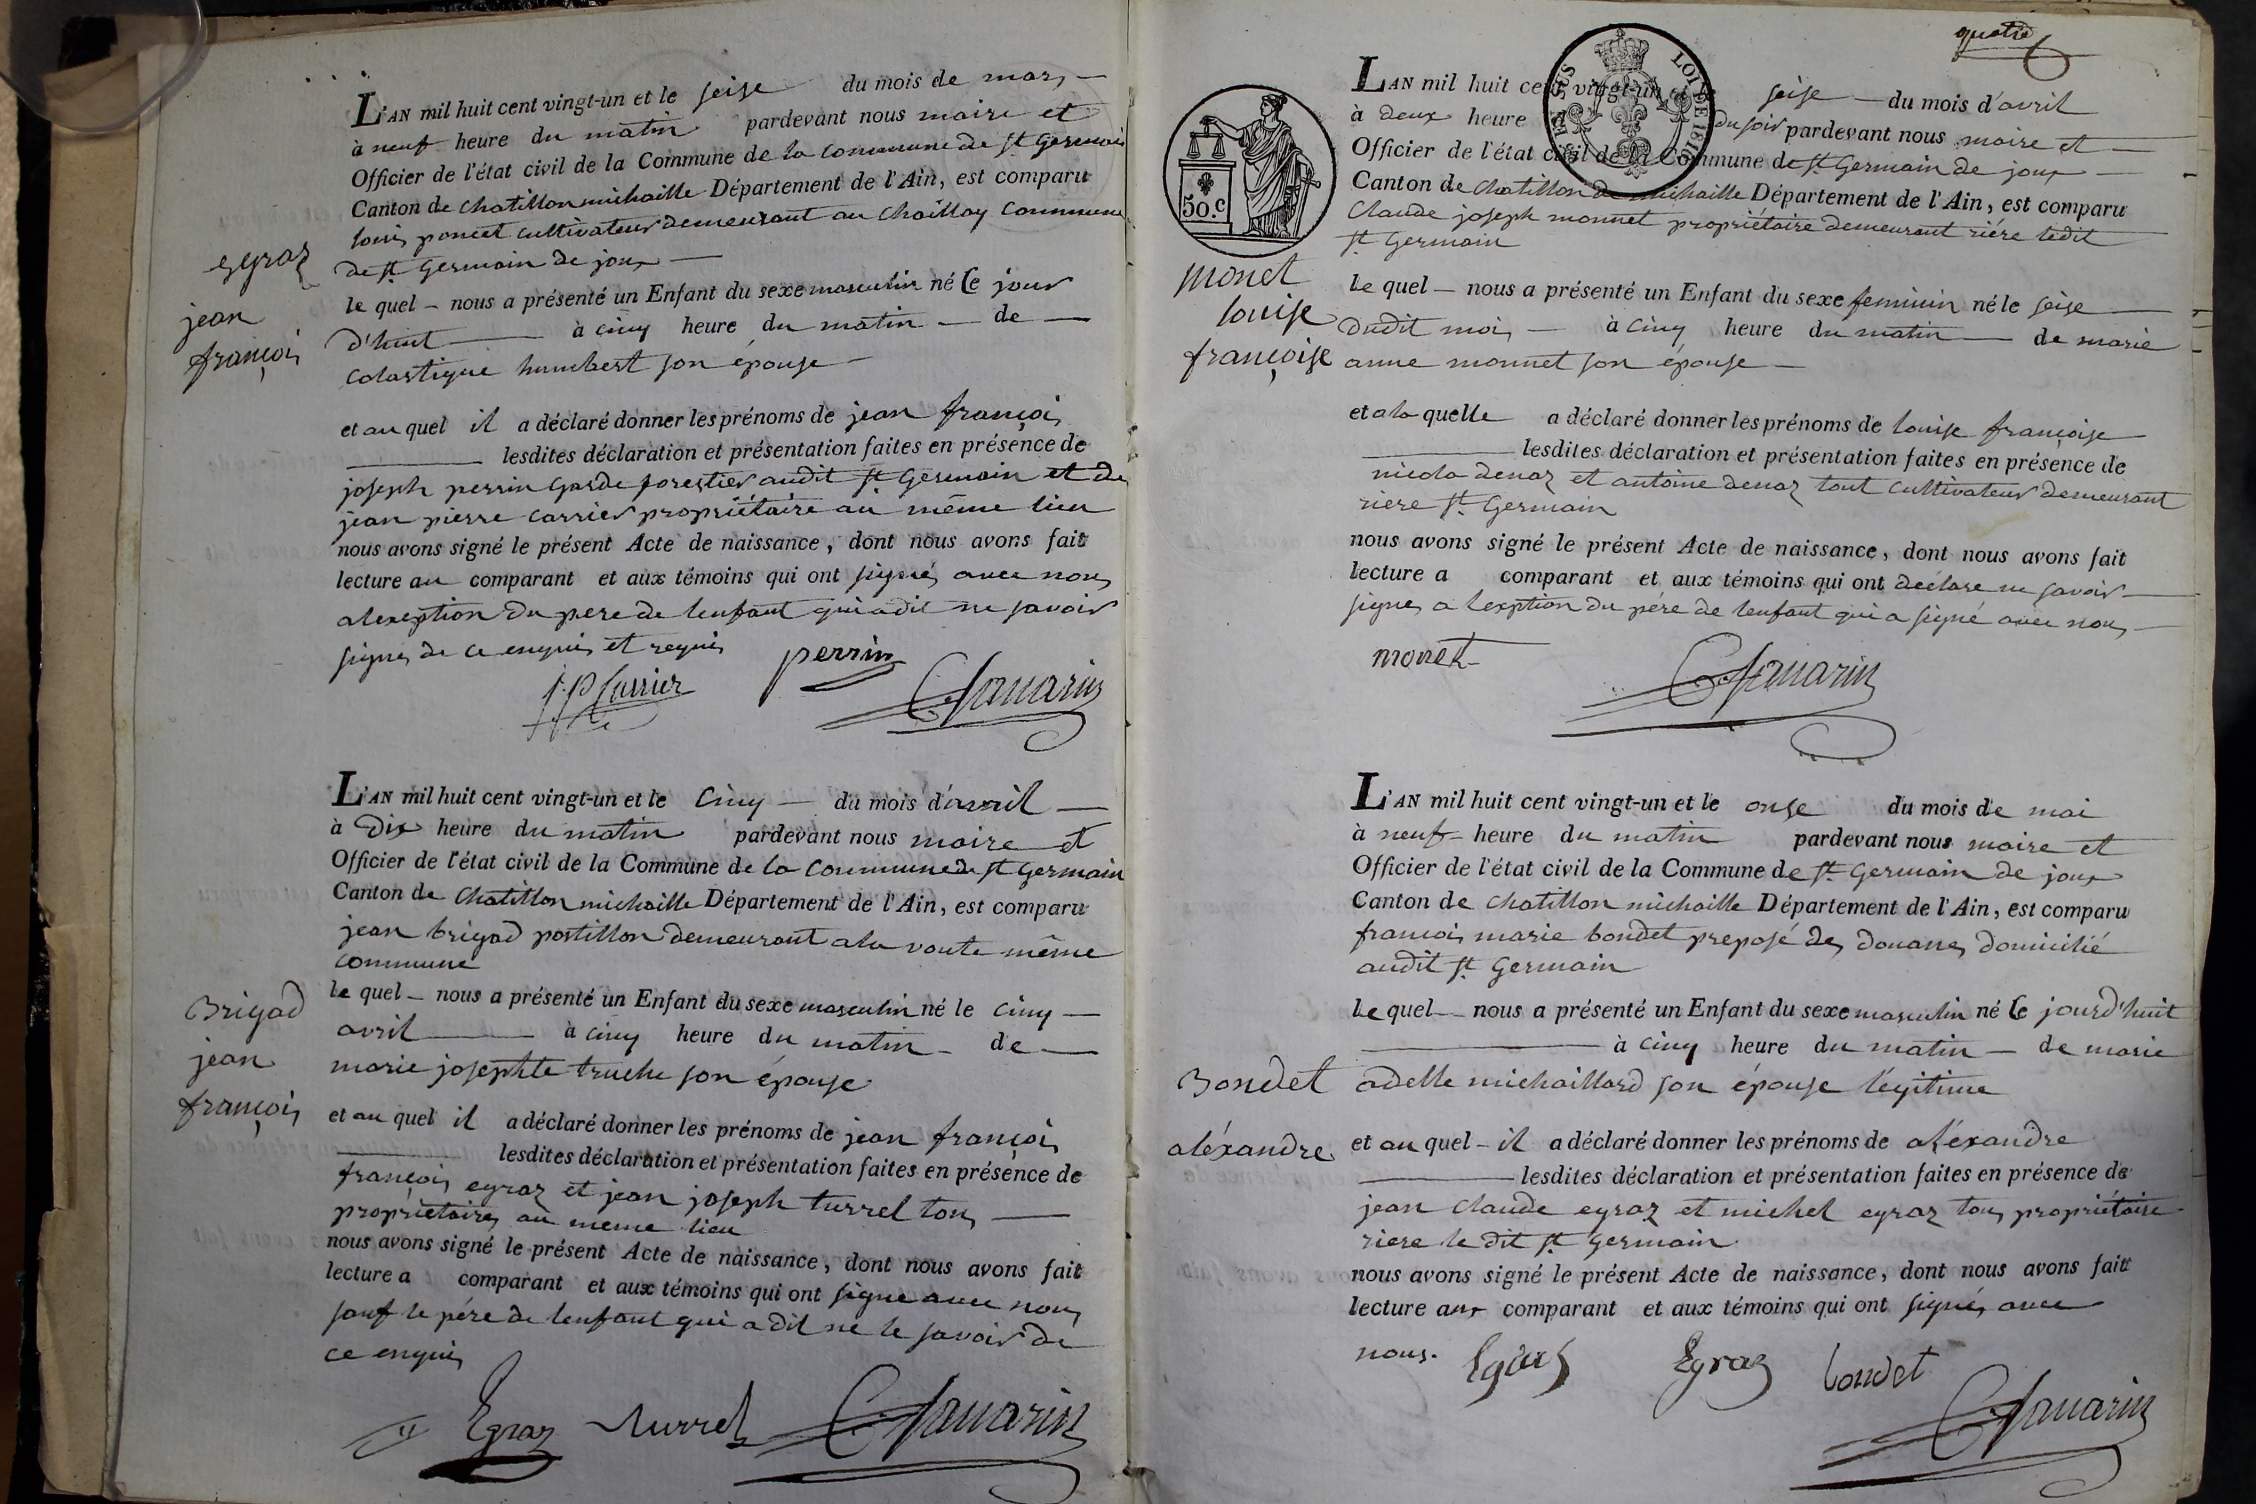 L'AN mil huit cent vingt-un et le seise du mois de mars
à neuf heure du matin pardevant nous maire et
Officier de l'état civil de la Commune de la commune de St Germain
Canton de chatillon michaille Département de l'Ain, est comparu
louis poncet cultivateur demeurant au Chaillay commune
de St Germain de joux
egraz
jean
françois
le quel nous a présenté un Enfant du sexe masculin né le jour
d'huit à cinq heure du matin de
colastique humbert son épouse
et au quel il a déclaré donner les prénoms de jean françois
lesdites déclaration et présentation faites en présence de
joseph perrin garde forestier audit St Germain et de
jean pierre carrier propriétaire au même lieu
nous avons signé le présent Acte de naissance, dont nous avons fait
lecture au comparant et aux témoins qui ont signés avec nous
a lexeption du pere de lenfant qui a dit ne savoir
signer de ce enquis et requis
J P Carrier perrin Savarin
L'AN mil huit cent vingt-un et le cinq du mois d'avril
à dix heure du matin pardevant nous maire et
Officier de l'état civil de la Commune de la commune de St Germain
Canton de chatillon michaille Département de l'Ain, est comparu
jean brigad postillon demeurant a la voute même
commune
Brigad
jean
françois
le quel nous a présenté un Enfant du sexe masculin né le cinq
avril à cinq heure du matin de
marie josephte truche son épouse
et au quel il a déclaré donner les prénoms de jean françois
lesdites déclaration et présentation faites en présence de
françois egraz et jean joseph turrel tous
propriétaires au meme lieu
nous avons signé le présent Acte de naissance, dont nous avons fait
lecture a comparant et aux témoins qui ont signe avec nous
sauf le pére de lenfant qui a dit ne le savoir de
ce enquis
Egraz turrel Savarin
quatre
EN SUS LOI DE 1816
50.c
L'AN mil huit cent vingt-un et le seise du mois d'avril
à deux heure du soir pardevant nous maire et
Officier de l'état civil de la Commune de St Germain de joux
Canton de chatillon de michaille Département de l'Ain, est comparu
Claude joseph monnet propriétaire demeurant riére ledit
St Germain
monet
louise
françoise
le quel nous a présenté un Enfant du sexe feminin né le seise
dudit mois à cinq heure du matin de marie
anne monnet son épouse
et a la quelle a déclaré donner les prénoms de louise françoise
lesdites déclaration et présentation faites en présence de
nicola denaz et antoine denaz tout cultivateur demeurant
riere St Germain
nous avons signé le présent Acte de naissance, dont nous avons fait
lecture a comparant et aux témoins qui ont déclare ne savoir
signer a lexption du pére de lenfant qui a signé avec nous
monet Savarin
L'AN mil huit cent vingt-un et le onse du mois de mai
à neuf heure du matin pardevant nous maire et
Officier de l'état civil de la Commune de St Germain de joux
Canton de chatillon michaille Département de l'Ain, est comparu
francois marie bondet preposé des douanes domicilié
audit St Germain
Bondet
aléxandre
le quel nous a présenté un Enfant du sexe masculin né le jourd'huit
à cinq heure du matin de marie
adelle michaillard son épouse légitime
et au quel il a déclaré donner les prénoms de aléxandre
lesdites déclaration et présentation faites en présence de
jean claude egraz et michel egraz tous propriétaire
riere le dit St Germain
nous avons signé le présent Acte de naissance, dont nous avons fait
lecture aux comparant et aux témoins qui ont signés avec
nous.
Egraz Egraz bondet Savarin